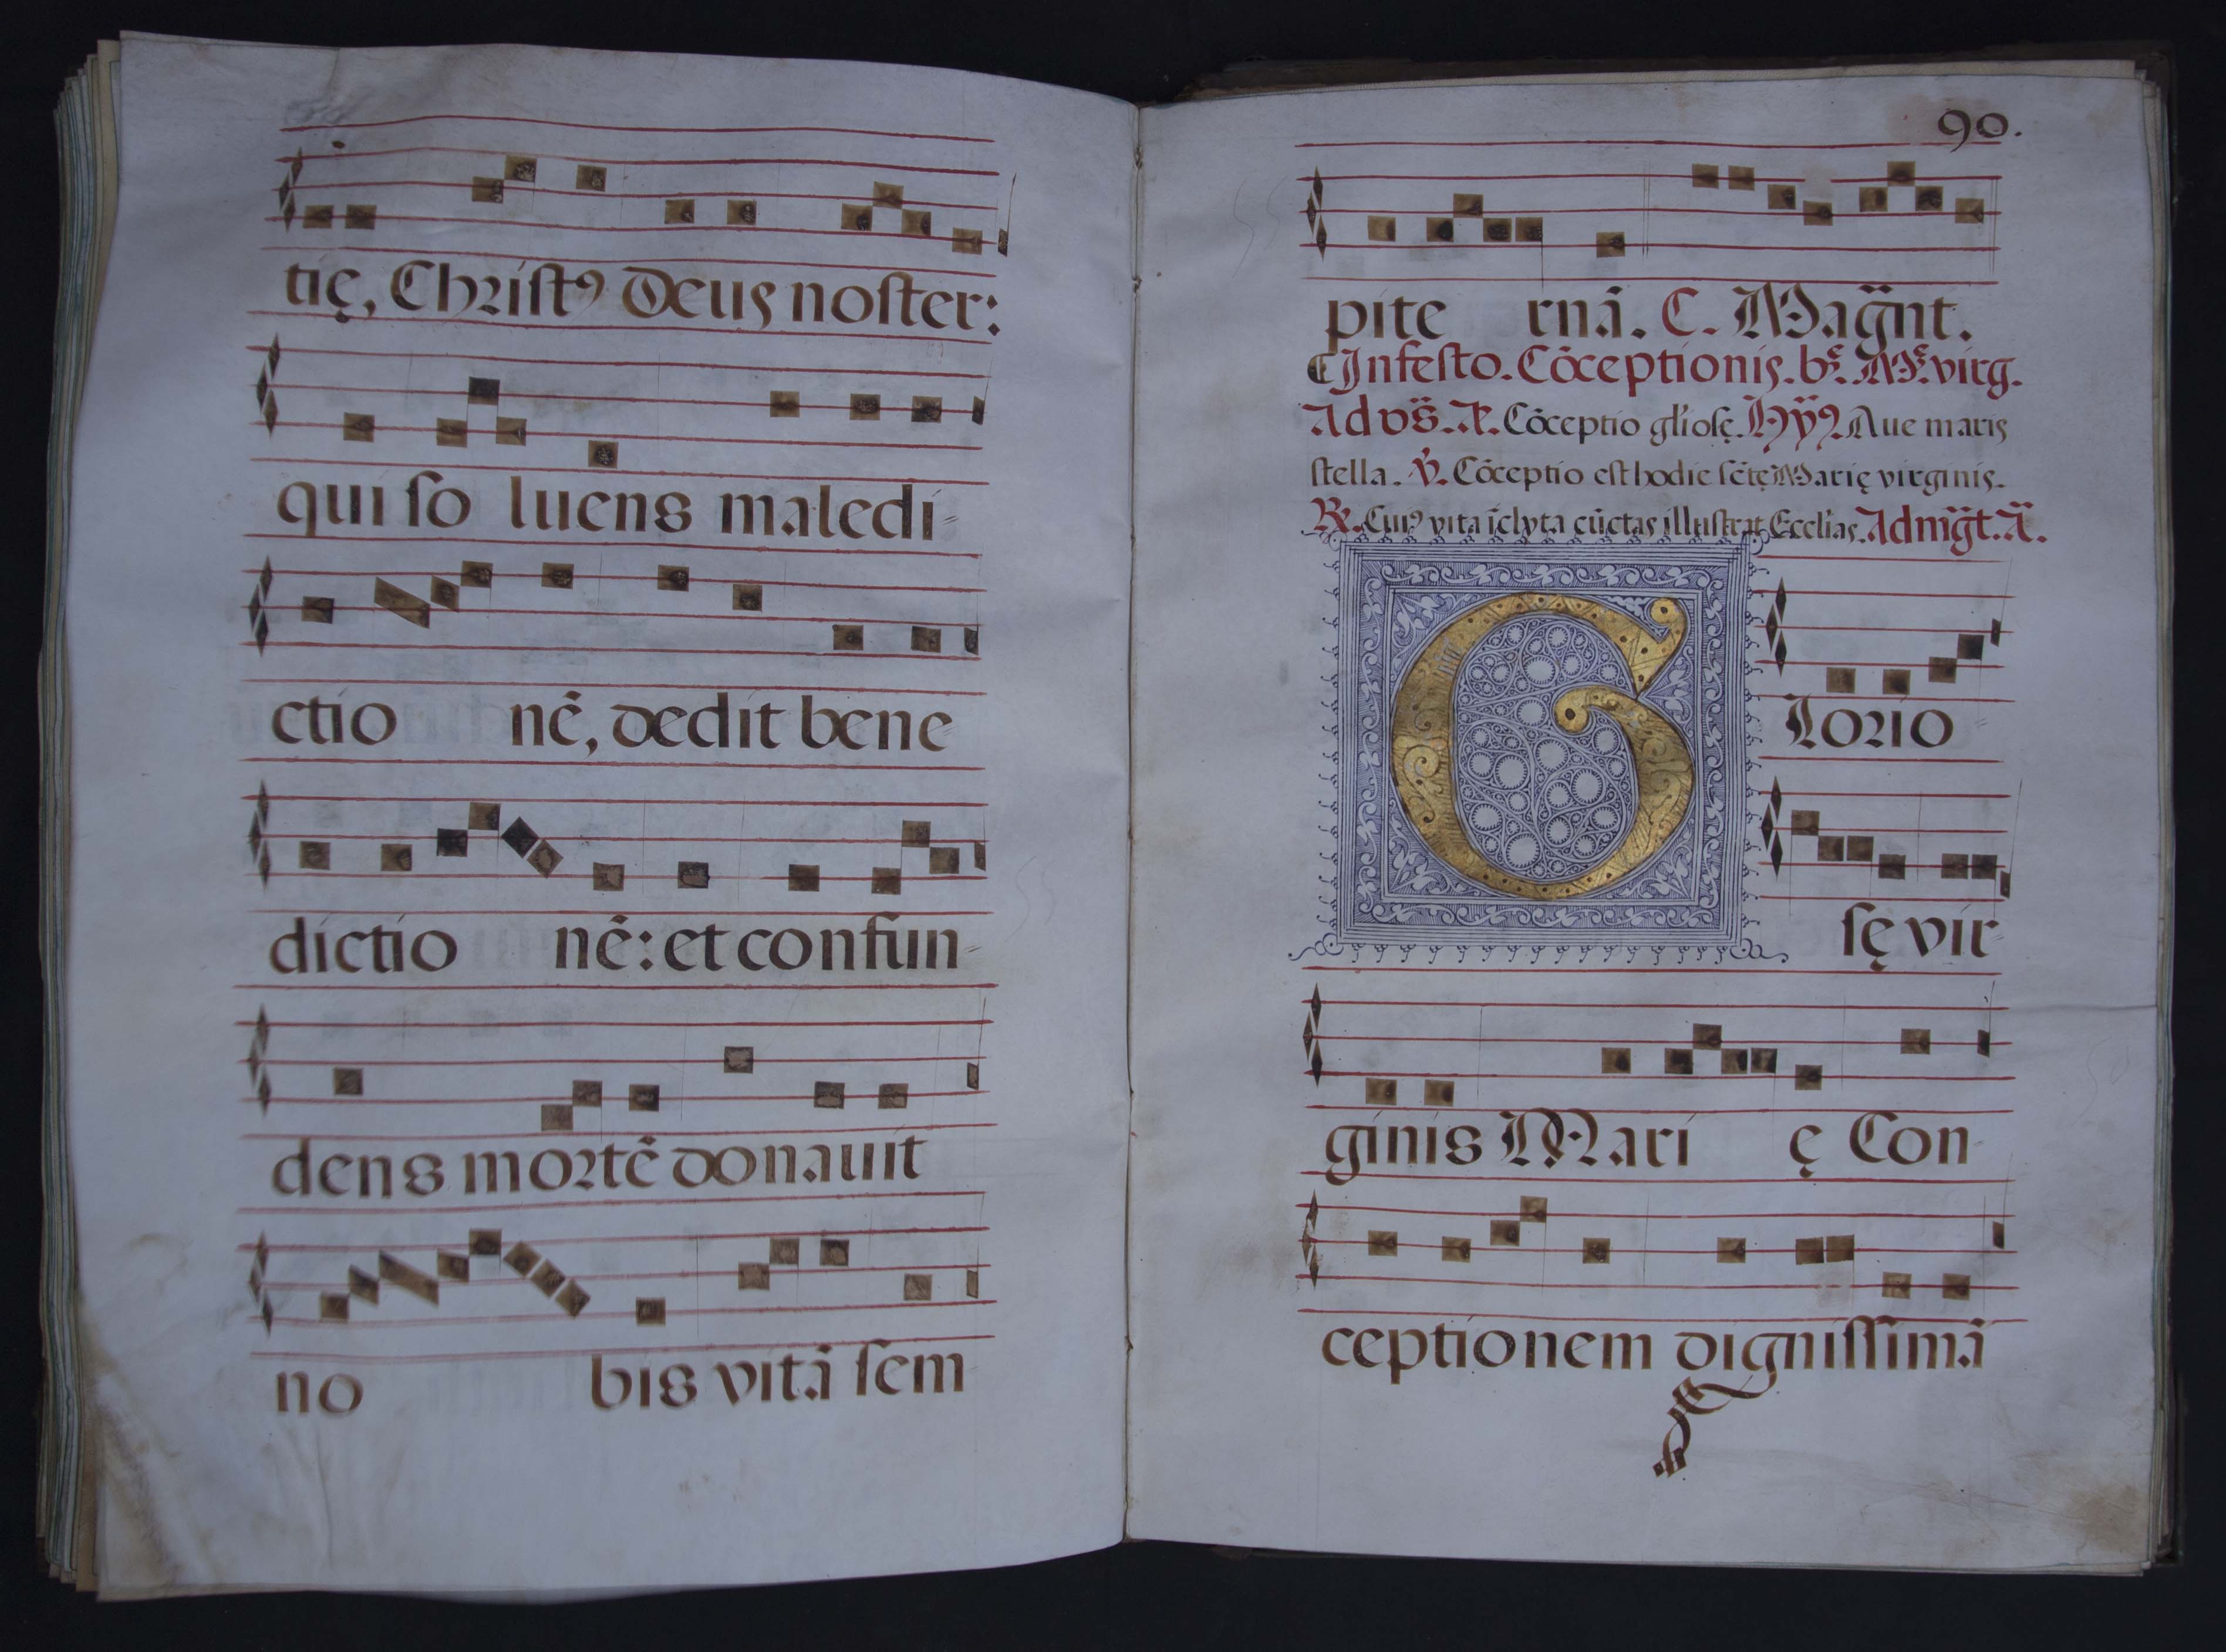 tię, Chriſtꝰ Deus noſter:
qui ſo luens maledi⹀
ctio nē, dedit bene
dictio nē: et confun⹀
dens mortē donauit
no bis vitā ſem
90.
pite rnā. C. Magn̄t.
Infeſto. Cōceptionis. bᵉ. Mᵉ. virg.
Ad vs̄. A. Cōceptio gl'ioſę. Hȳꝰ Aue maris
ſtella. ℣. Cōceptio eſt hodie ſc̄tę Marię virginis.
℟. Cuiꝰ vita īclyta cūctas illuſtrat Eccl'ias. Ad mḡt. Ā.
Glorio⹀
ſę vir⹀
ginis Mari ę Con⹀
ceptionem digniſſimā